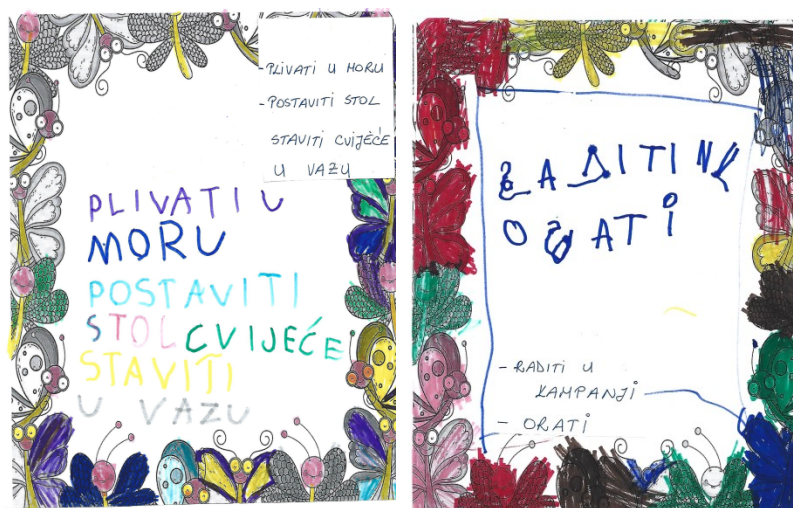 - PLIVATI U MORU
- POSTAVITI STOL
STAVITI CVIJEĆE
U VAZU
PLIVATI U
MORU
POSTAVITI
STOL CVIJEĆE
STAVITI
U VAZU
ADITI
O ATI
- RADITI U
KAMPANJI
- ORATI